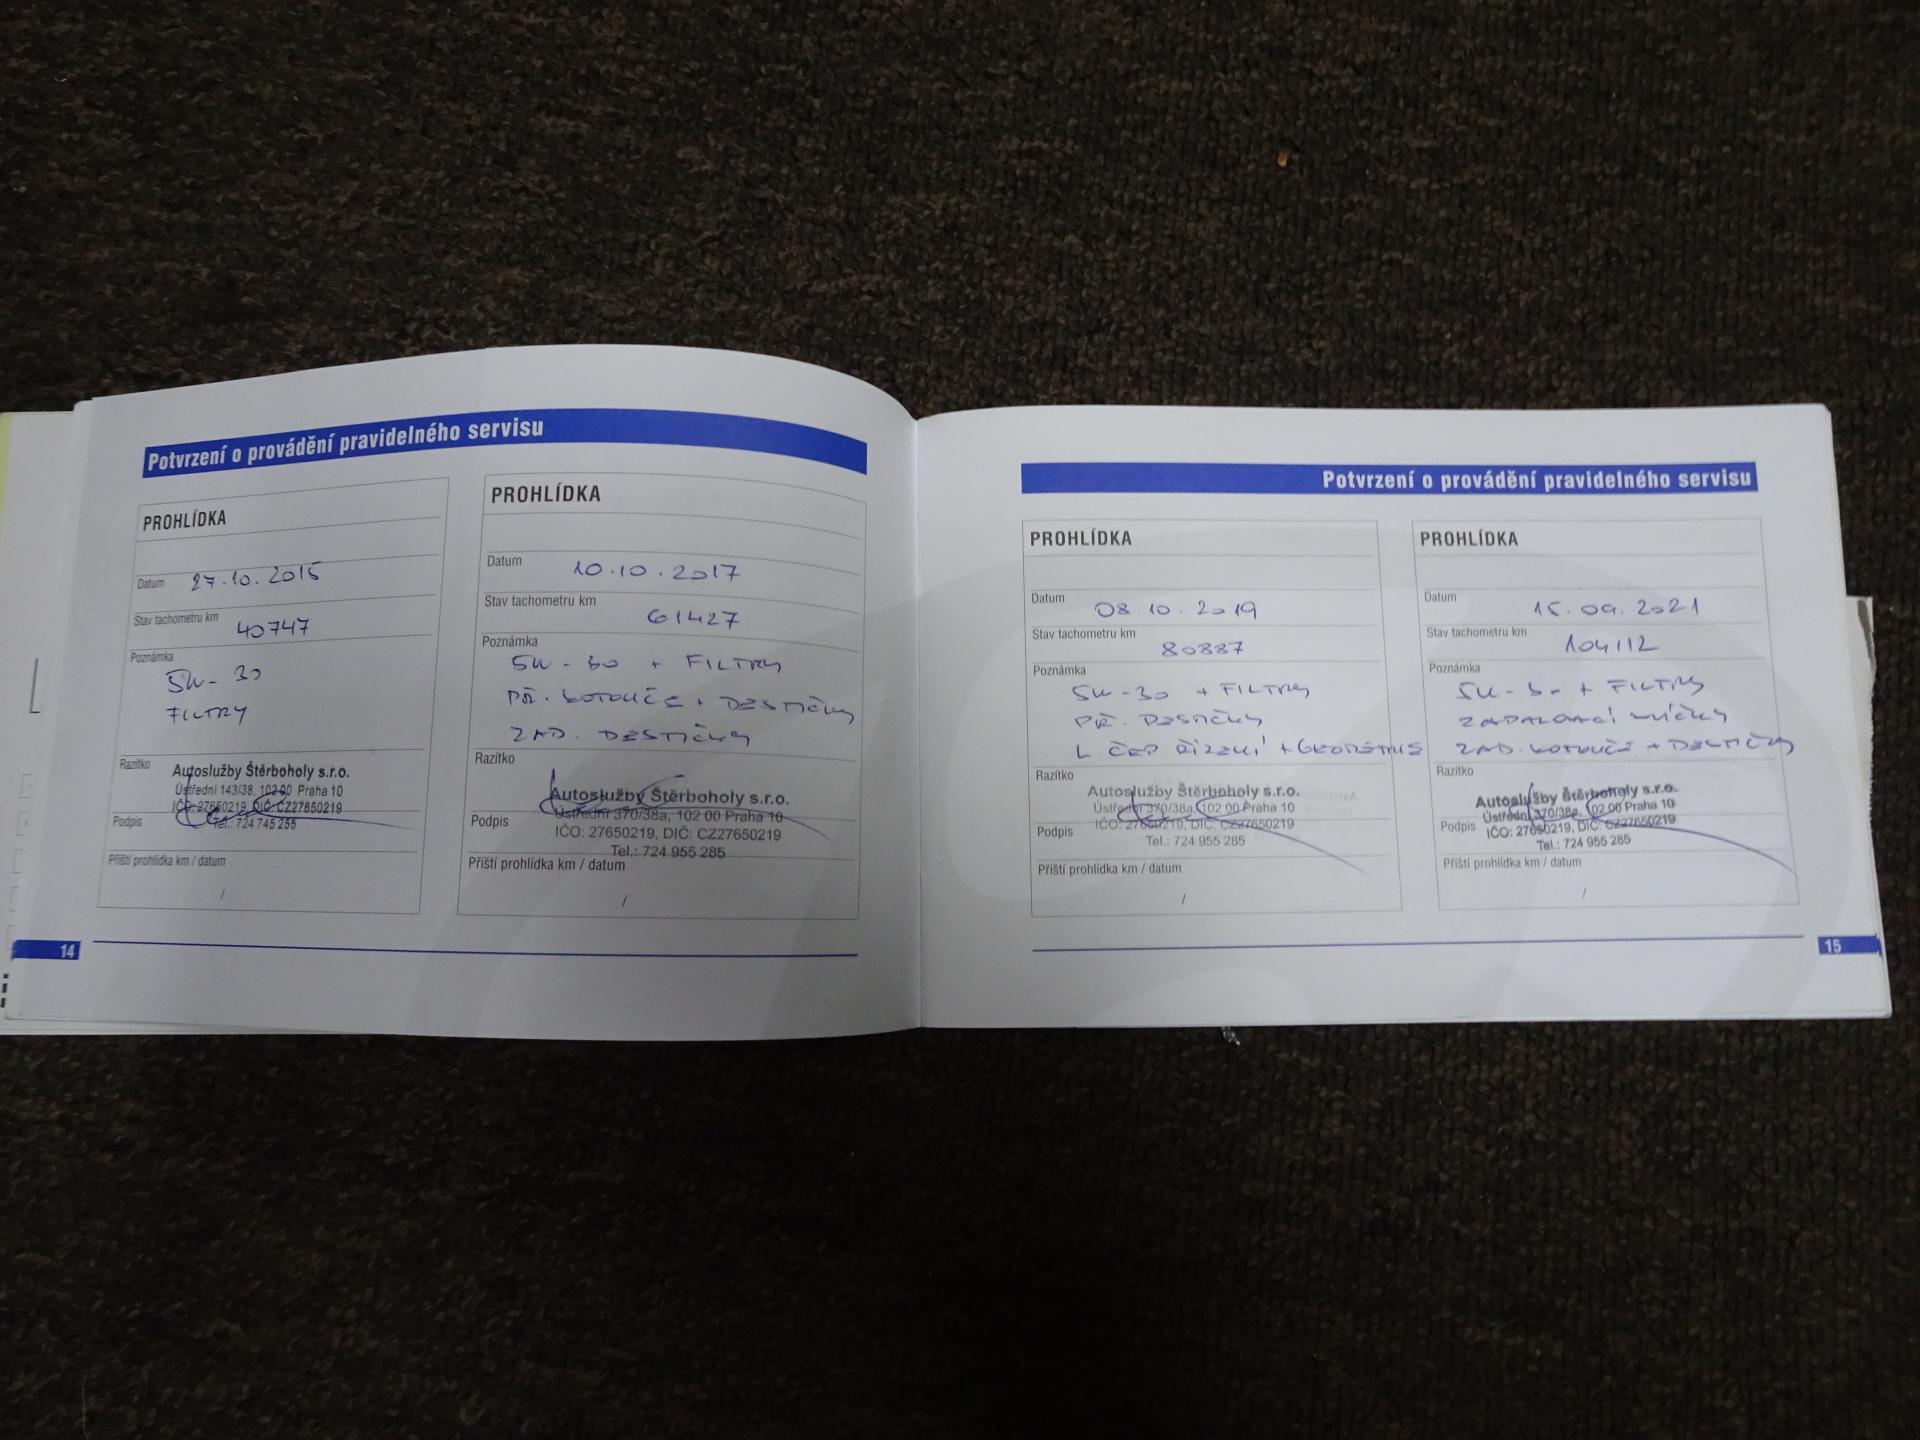 Potvrzení o provádění pravidelného servisu
PROHLÍDKA
Datum 27.10.2015
Stav tachometru km 40747
Poznámka
5W-30
FILTRY
Razítko
Autoslužby Štěrboholy s.r.o.
Ústřední 143/38, 102 00 Praha 10
IČO: 27650219, DIČ: CZ27650219
Podpis
Tel.: 724 745 255
Příští prohlídka km / datum
/
PROHLÍDKA
Datum 10.10.2017
Stav tachometru km 61427
Poznámka
5W-30 + FILTRY
PŘ. KOTOUČE + DESTIČKY
ZAD. DESTIČKY
Razítko
Autoslužby Štěrboholy s.r.o.
Ústřední 370/38a, 102 00 Praha 10
Podpis
IČO: 27650219, DIČ: CZ27650219
Tel.: 724 955 285
Příští prohlídka km / datum
/
14
Potvrzení o provádění pravidelného servisu
PROHLÍDKA
Datum 08.10.2019
Stav tachometru km 80887
Poznámka
5W-30 + FILTRY
PŘ. DESTIČKY
L ČEP ŘÍZENÍ + GEOMETRIE
Razítko
Autoslužby Štěrboholy s.r.o.
Ústřední 370/38a, 102 00 Praha 10
IČO: 27650219, DIČ: CZ27650219
Podpis
Tel.: 724 955 285
Příští prohlídka km / datum
/
PROHLÍDKA
Datum 15.09.2021
Stav tachometru km 104112
Poznámka
5W-30 + FILTRY
ZAPALOVACÍ SVÍČKY
ZAD. KOTOUČE + DESTIČKY
Razítko
Autoslužby Štěrboholy s.r.o.
Ústřední 370/38a, 102 00 Praha 10
Podpis
IČO: 27650219, DIČ: CZ27650219
Tel.: 724 955 285
Příští prohlídka km / datum
/
15